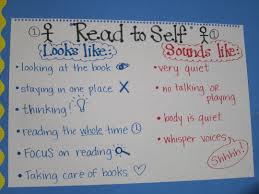 ① Read to Self ①
Looks like:
• looking at the book
• staying in one place X
• thinking!
• reading the whole time ①
• Focus on reading
• Taking care of books
Sounds like:
• very quiet
• no talking or
playing
• body is quiet
• whisper voices
Shhhh!